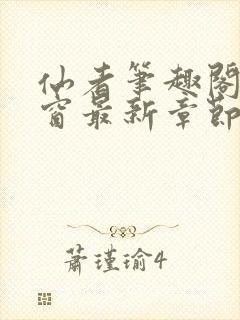 仙者筆趣閣
窗最新章節
蕭瑾瑜4